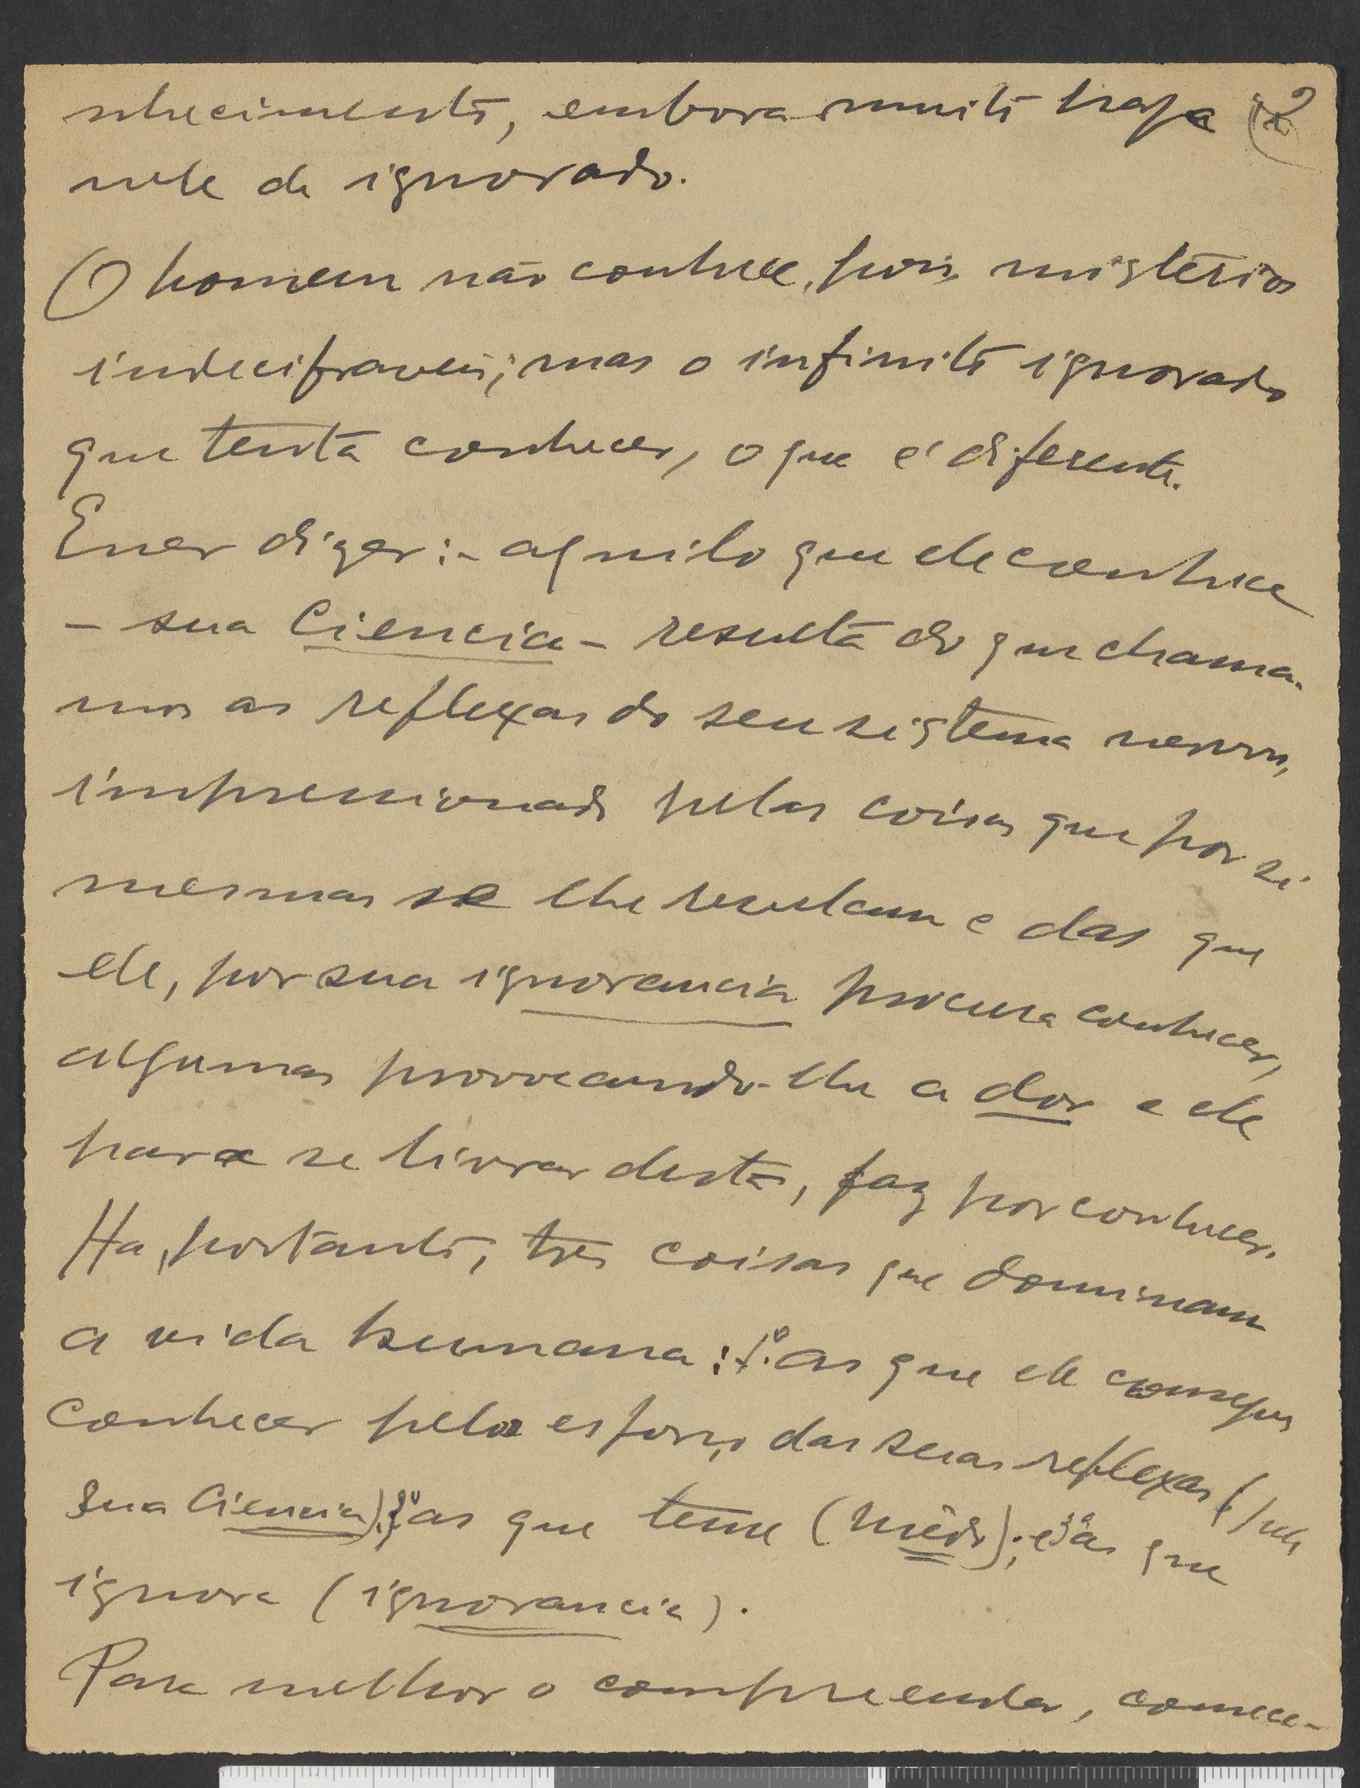 nhecimento, embora muito haja 2
nele de ignorado.
O homem não conhece, pois, mistérios
indecifraveis; mas o infinito ignorado
que tenta conhecer, o que é diferente.
Quer dizer:- aquilo que ele conhece
- sua Ciencia - resulta do que chama-
mos as reflexas do seu sistema nervoso,
impressionado pelas coisas que por si
mesmas se lhe revelam e das que
ele, por sua ignorancia procura conhecer,
algumas provocando-lhe a dor e ele
para se livrar desta, faz por conhecer.
Ha, portanto, tres coisas que dominam
a vida humana: 1º. as que ele consegue
conhecer pelo esforço das suas reflexas (pela
sua Ciencia); 2º as que teme (mêdo); e 3º as que
ignora (ignorancia).
Para melhor o compreender, comece-